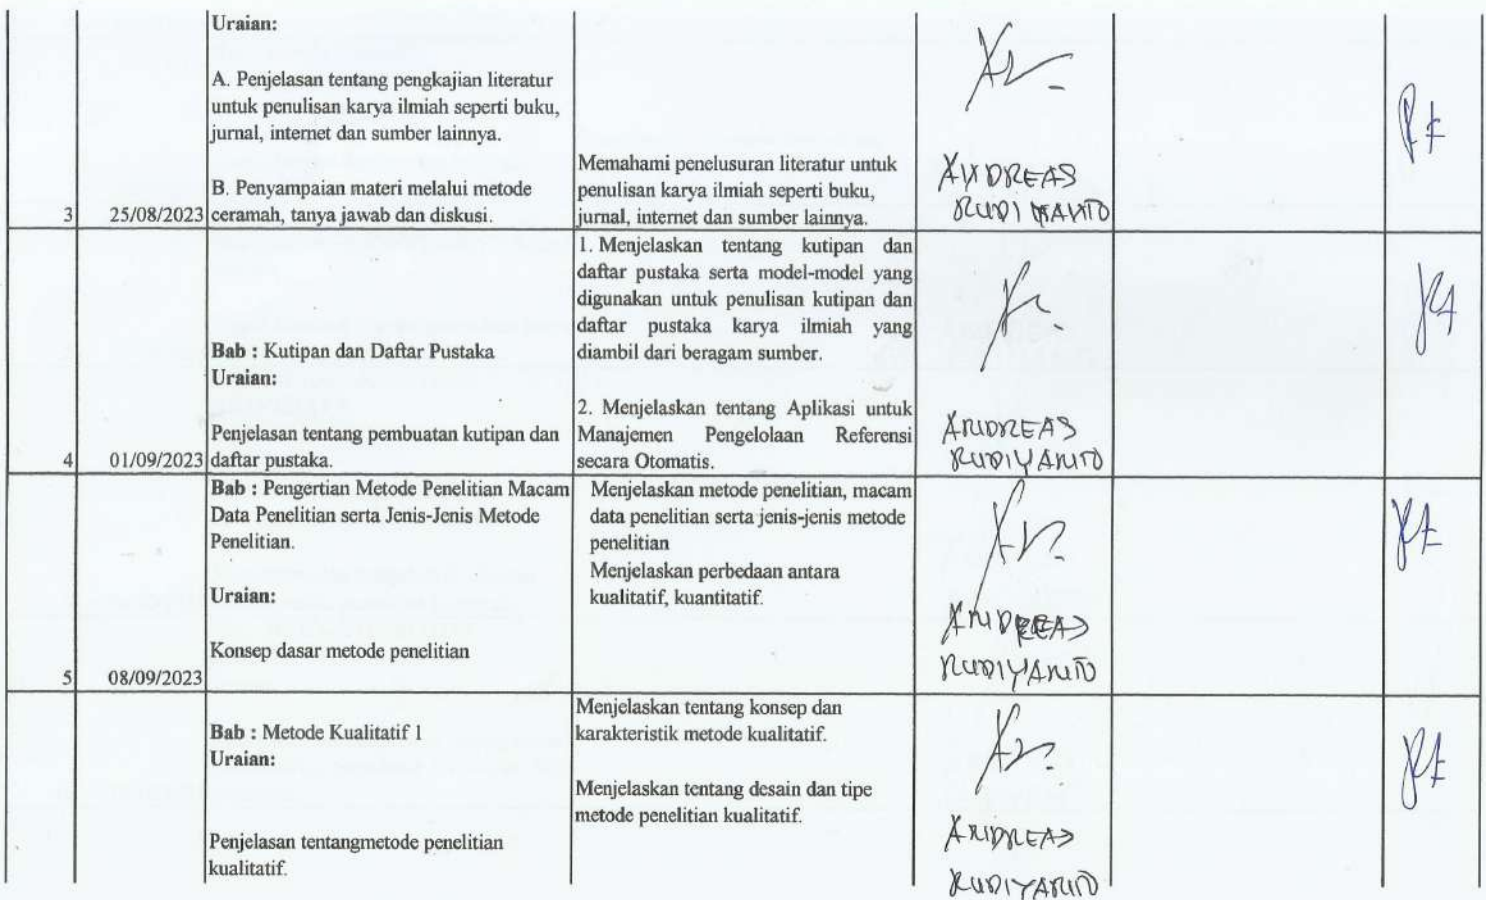 Uraian:
A. Penjelasan tentang pengkajian literatur
untuk penulisan karya ilmiah seperti buku,
jurnal, internet dan sumber lainnya.
B. Penyampaian materi melalui metode
ceramah, tanya jawab dan diskusi.
3
25/08/2023
Memahami penelusuran literatur untuk
penulisan karya ilmiah seperti buku,
jurnal, internet dan sumber lainnya.
ANDREAS
RUDIYANTO
4
01/09/2023
Bab : Kutipan dan Daftar Pustaka
Uraian:
Penjelasan tentang pembuatan kutipan dan
daftar pustaka.
1. Menjelaskan tentang kutipan dan
daftar pustaka serta model-model yang
digunakan untuk penulisan kutipan dan
daftar pustaka karya ilmiah yang
diambil dari beragam sumber.
2. Menjelaskan tentang Aplikasi untuk
Manajemen Pengelolaan Referensi
secara Otomatis.
ANDREAS
RUDIYANTO
5
08/09/2023
Bab : Pengertian Metode Penelitian Macam
Data Penelitian serta Jenis-Jenis Metode
Penelitian.
Uraian:
Konsep dasar metode penelitian
Menjelaskan metode penelitian, macam
data penelitian serta jenis-jenis metode
penelitian
Menjelaskan perbedaan antara
kualitatif, kuantitatif.
ANDREAS
RUDIYANTO
Bab : Metode Kualitatif 1
Uraian:
Penjelasan tentangmetode penelitian
kualitatif.
Menjelaskan tentang konsep dan
karakteristik metode kualitatif.
Menjelaskan tentang desain dan tipe
metode penelitian kualitatif.
ANDREAS
RUDIYANTO